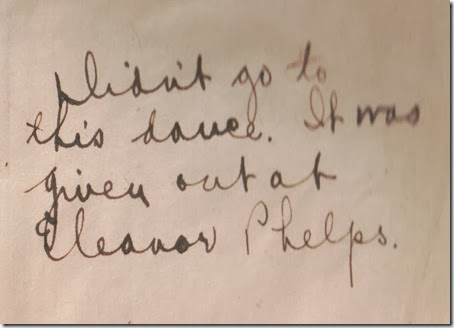 Didn't go to
this dance. It was
given out at
Eleanor Phelps.